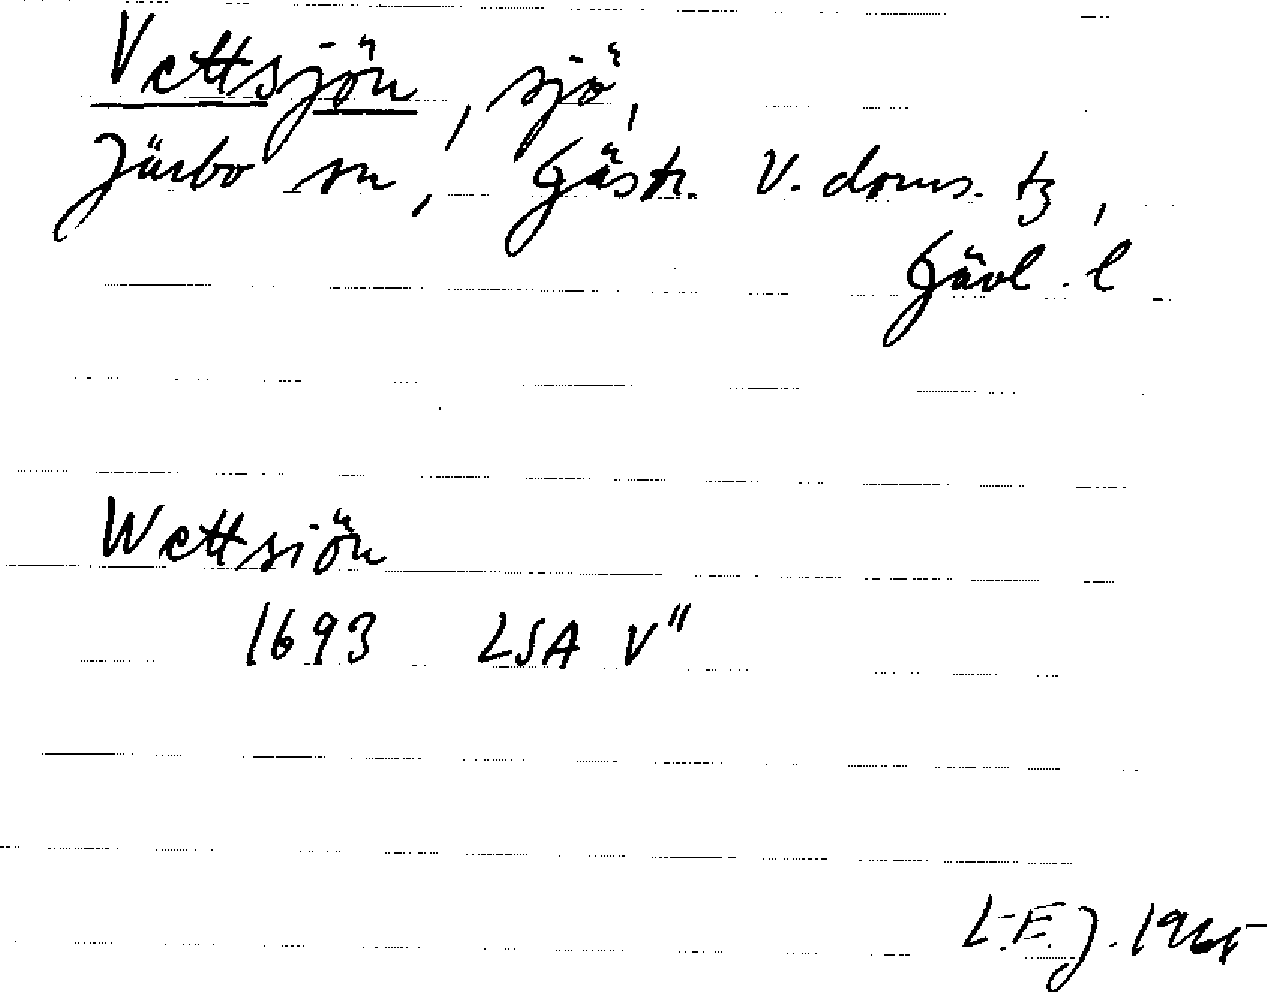 Vettsjön, sjö,
Järbo sn, Gästr. V. doms. tg,
Gävl. l
Wettsiön
1693 LSA V"
L.E.J. 1965